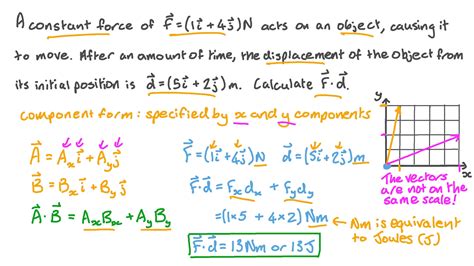 A constant force of F⃗ = (1i⃗ + 4j⃗)N acts on an object, causing it
to move. After an amount of time, the displacement of the object from
its initial position is d⃗ = (5i⃗ + 2j⃗)m. Calculate F⃗ · d⃗.
component form: specified by x and y components
A⃗ = Aₓi⃗ + Aᵧj⃗
B⃗ = Bₓi⃗ + Bᵧj⃗
A⃗ · B⃗ = AₓBₓ + AᵧBᵧ
F⃗ = (1i⃗ + 4j⃗)N d⃗ = (5i⃗ + 2j⃗)m
F⃗ · d⃗ = Fₓdₓ + Fᵧdᵧ
= (1×5 + 4×2) Nm
F⃗ · d⃗ = 13Nm or 13J
Nm is equivalent
to Joules (J)
y
x
The vectors
are not on the
same scale!